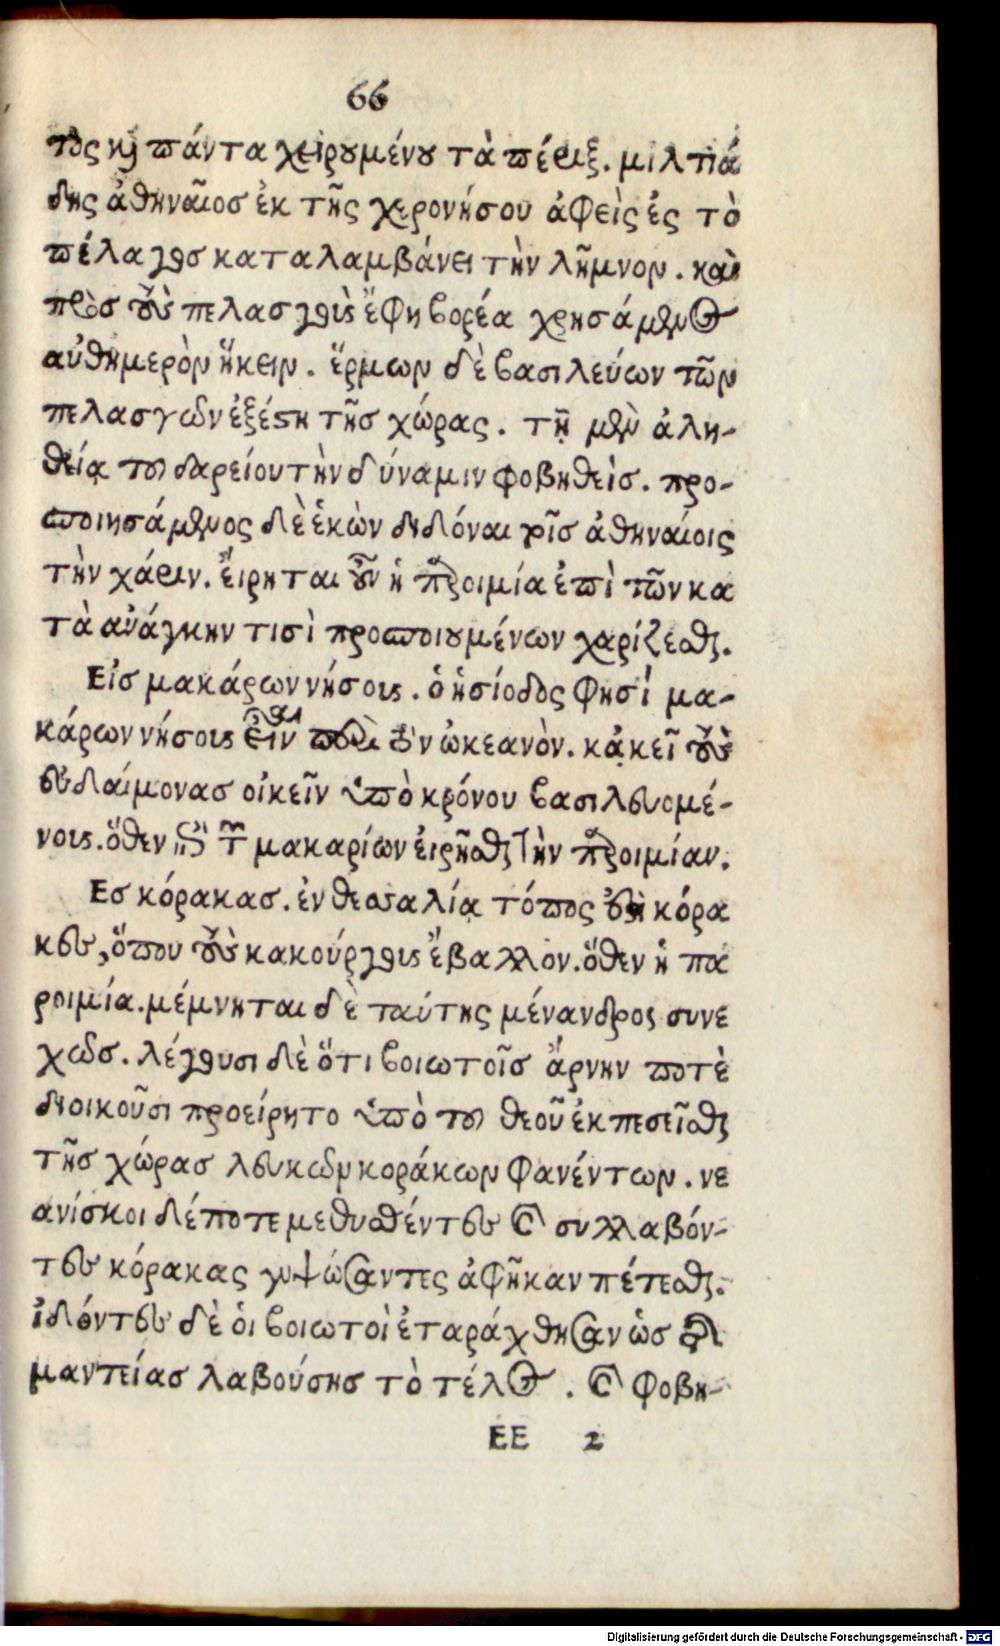 66
τος καὶ πάντα χειρουμένου τὰ πέριξ. μιλτιά
δης ἀθηναῖος ἐκ τῆς χερονήσου ἀφεὶς ἐς τὸ
πέλαγος καταλαμβάνει τὴν λῆμνον. καὶ
πρὸς τοὺς πελασγοὺς ἔφη βορέα χρησάμενος
αὐθημερὸν ἥκειν. ἕρμων δὲ βασιλεύων τῶν
πελασγῶν ἐξέστη τῆς χώρας. τῇ μὲν ἀλη-
θείᾳ τοῦ δαρείου τὴν δύναμιν φοβηθείς. προ-
ποιησάμενος δὲ ἑκὼν διδόναι τοῖς ἀθηναίοις
τὴν χάριν. ἔιρηται οὖν ἡ παροιμία ἐπὶ τῶν κα
τὰ ἀνάγκην τισὶ προσποιουμένων χαρίζεσθαι.
Εἰς μακάρων νήσους. ὁ ἡσίοδος φησὶ μα-
κάρων νήσους εἶναι περὶ τὸν ὠκεανὸν. κἀκεῖ τοὺς
εὐδαίμονας οἰκεῖν ὑπὸ κρόνου βασιλευομέ-
νους. ὅθεν ἐπὶ τῶν μακαρίων ἐιρῆσθαι τὴν παροιμίαν.
Ες κόρακας. ἐν θεσσαλίᾳ τόπος ἐστὶ κόρα
κες, ὅπου τοὺς κακούργους ἔβαλλον. ὅθεν ἡ πα
ροιμία. μέμνηται δὲ ταύτης μένανδρος συνε
χῶς. λέγουσι δὲ ὅτι βοιωτοῖς ἄρνην ποτὲ
διοικοῦσι προείρητο ὑπὸ τοῦ θεοῦ ἐκπεσεῖσθαι
τῆς χώρας λευκῶν κοράκων φανέντων. νε
ανίσκοι δέ ποτε μεθυσθέντες καὶ συλλαβόν-
τες κόρακας γυψώσαντες ἀφῆκαν πέτεσθαι.
ἰδόντες δὲ ὁι βοιωτοὶ ἐταράχθησαν ὡς τῆς
μαντείας λαβούσης τὸ τέλος. καὶ φοβη-
EE 2
Digitalisierung gefördert durch die Deutsche Forschungsgemeinschaft - DFG